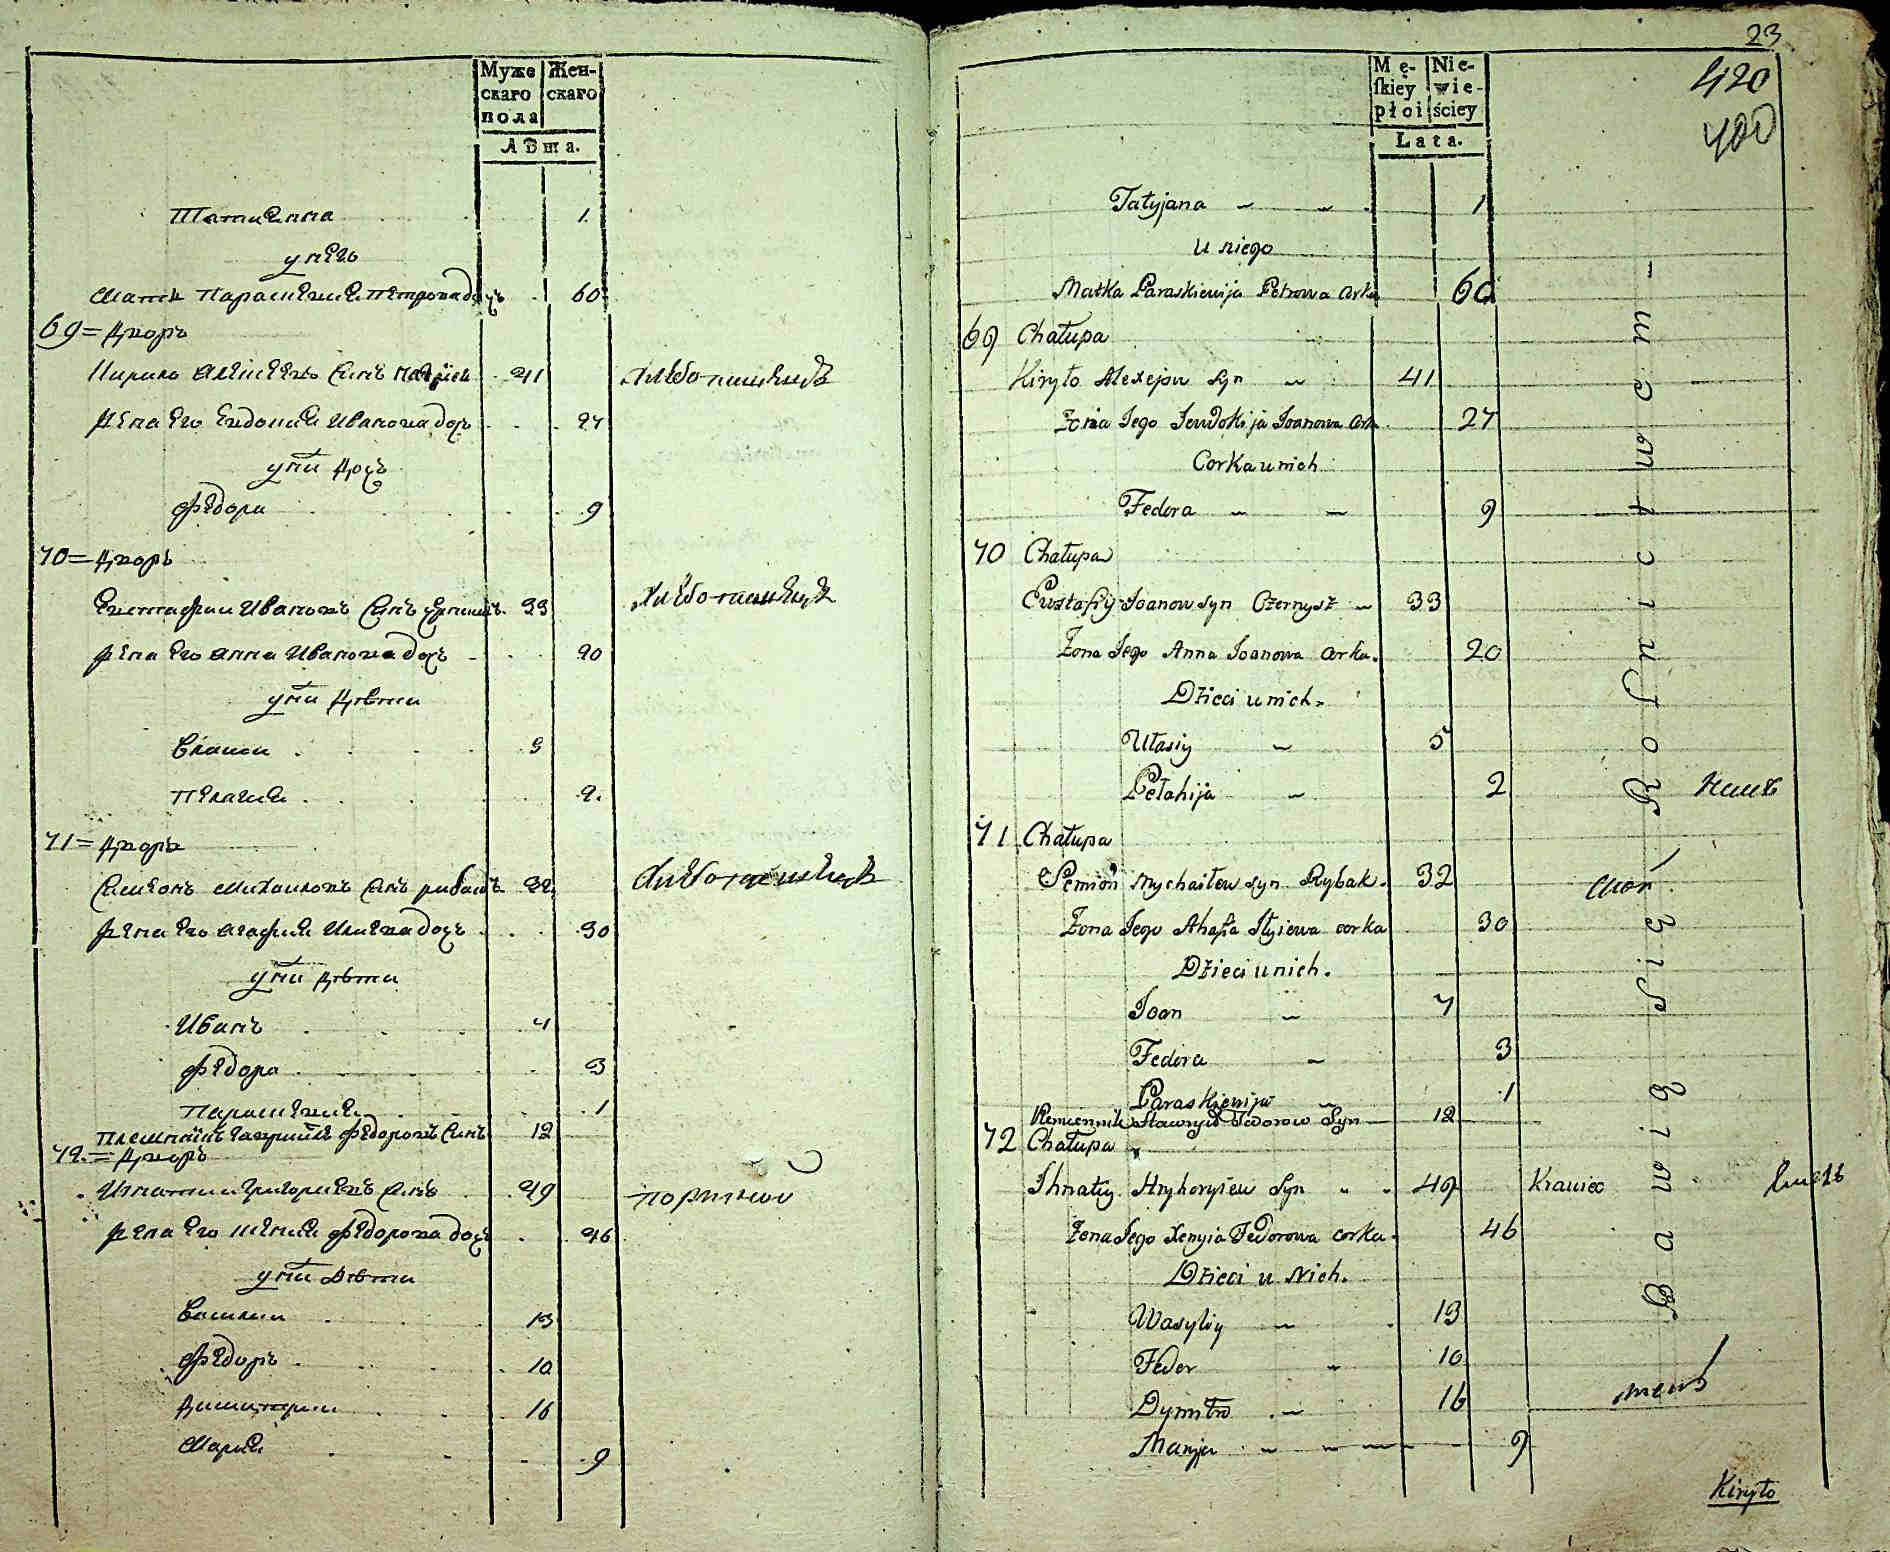 Муже
скаго
пола
Жен-
скаго
Лѣта.
Татиѧнна 1.
у нѣго
60
69= Дворъ
41 хлѣбопашецъ
жена его Евдокия Иванова дочь 27
у ни дочь
Федора 9
70= Дворъ
Евстафии Ивановъ синъ 33 хлѣбопашецъ
жена его Анна Иванова дочь 20
у ни дѣти
Власии 5
Пелагия 2.
71= Дворъ
Симеонъ Михаиловъ синъ рибакъ 32. хлѣбопашецъ
жена его Агафия Илиева дочь 30
у ни дѣти
Иванъ 4
Федора 3
Парасковия 1
Племѣнникъ Федоровъ синъ 12
72.= Дворъ
Игнатии Григориевъ синъ 49 портнои
жена его Ксения Федорова дочь 46
у ни дѣти
Василии 13
Федоръ 10
Димитрии 16
Мария 9
23
Mę-
skiey
płoi
Nie-
wie-
ściey
Lata.
420
400
Tatyjana 1
u niego
Matka Paraskiewija Petrowa corka 60
69 Chałupa
Kiryło Alexejew syn 41
Żona Jego Jewdokija Joanowa corka 27
Corka u nich
Fedora 9
70 Chałupa
Eustafiy Joanow syn Czernysz 33
Żona Jego Anna Joanowa corka. 20
Dzieci u nich.
Ułasiy 5
Pełahija 2
71 Chałupa
Semion Mychaiłew syn Rybak. 32
Żona Jego Ahafia Jłyiewa corka 30
Dzieci u nich.
Joan 4
Fedora 3
Paraskiewija 1
Fedorow Syn 12
72 Chałupa
Jhnatiy Hryhoryiew Syn 49 Krawiec
Żona Jego Xenyia Fedorowa corka. 46
Dzieci u Nich.
Wasyliy 13
Fedor 10
Dymitro 16
Maryja 9
Kiryło